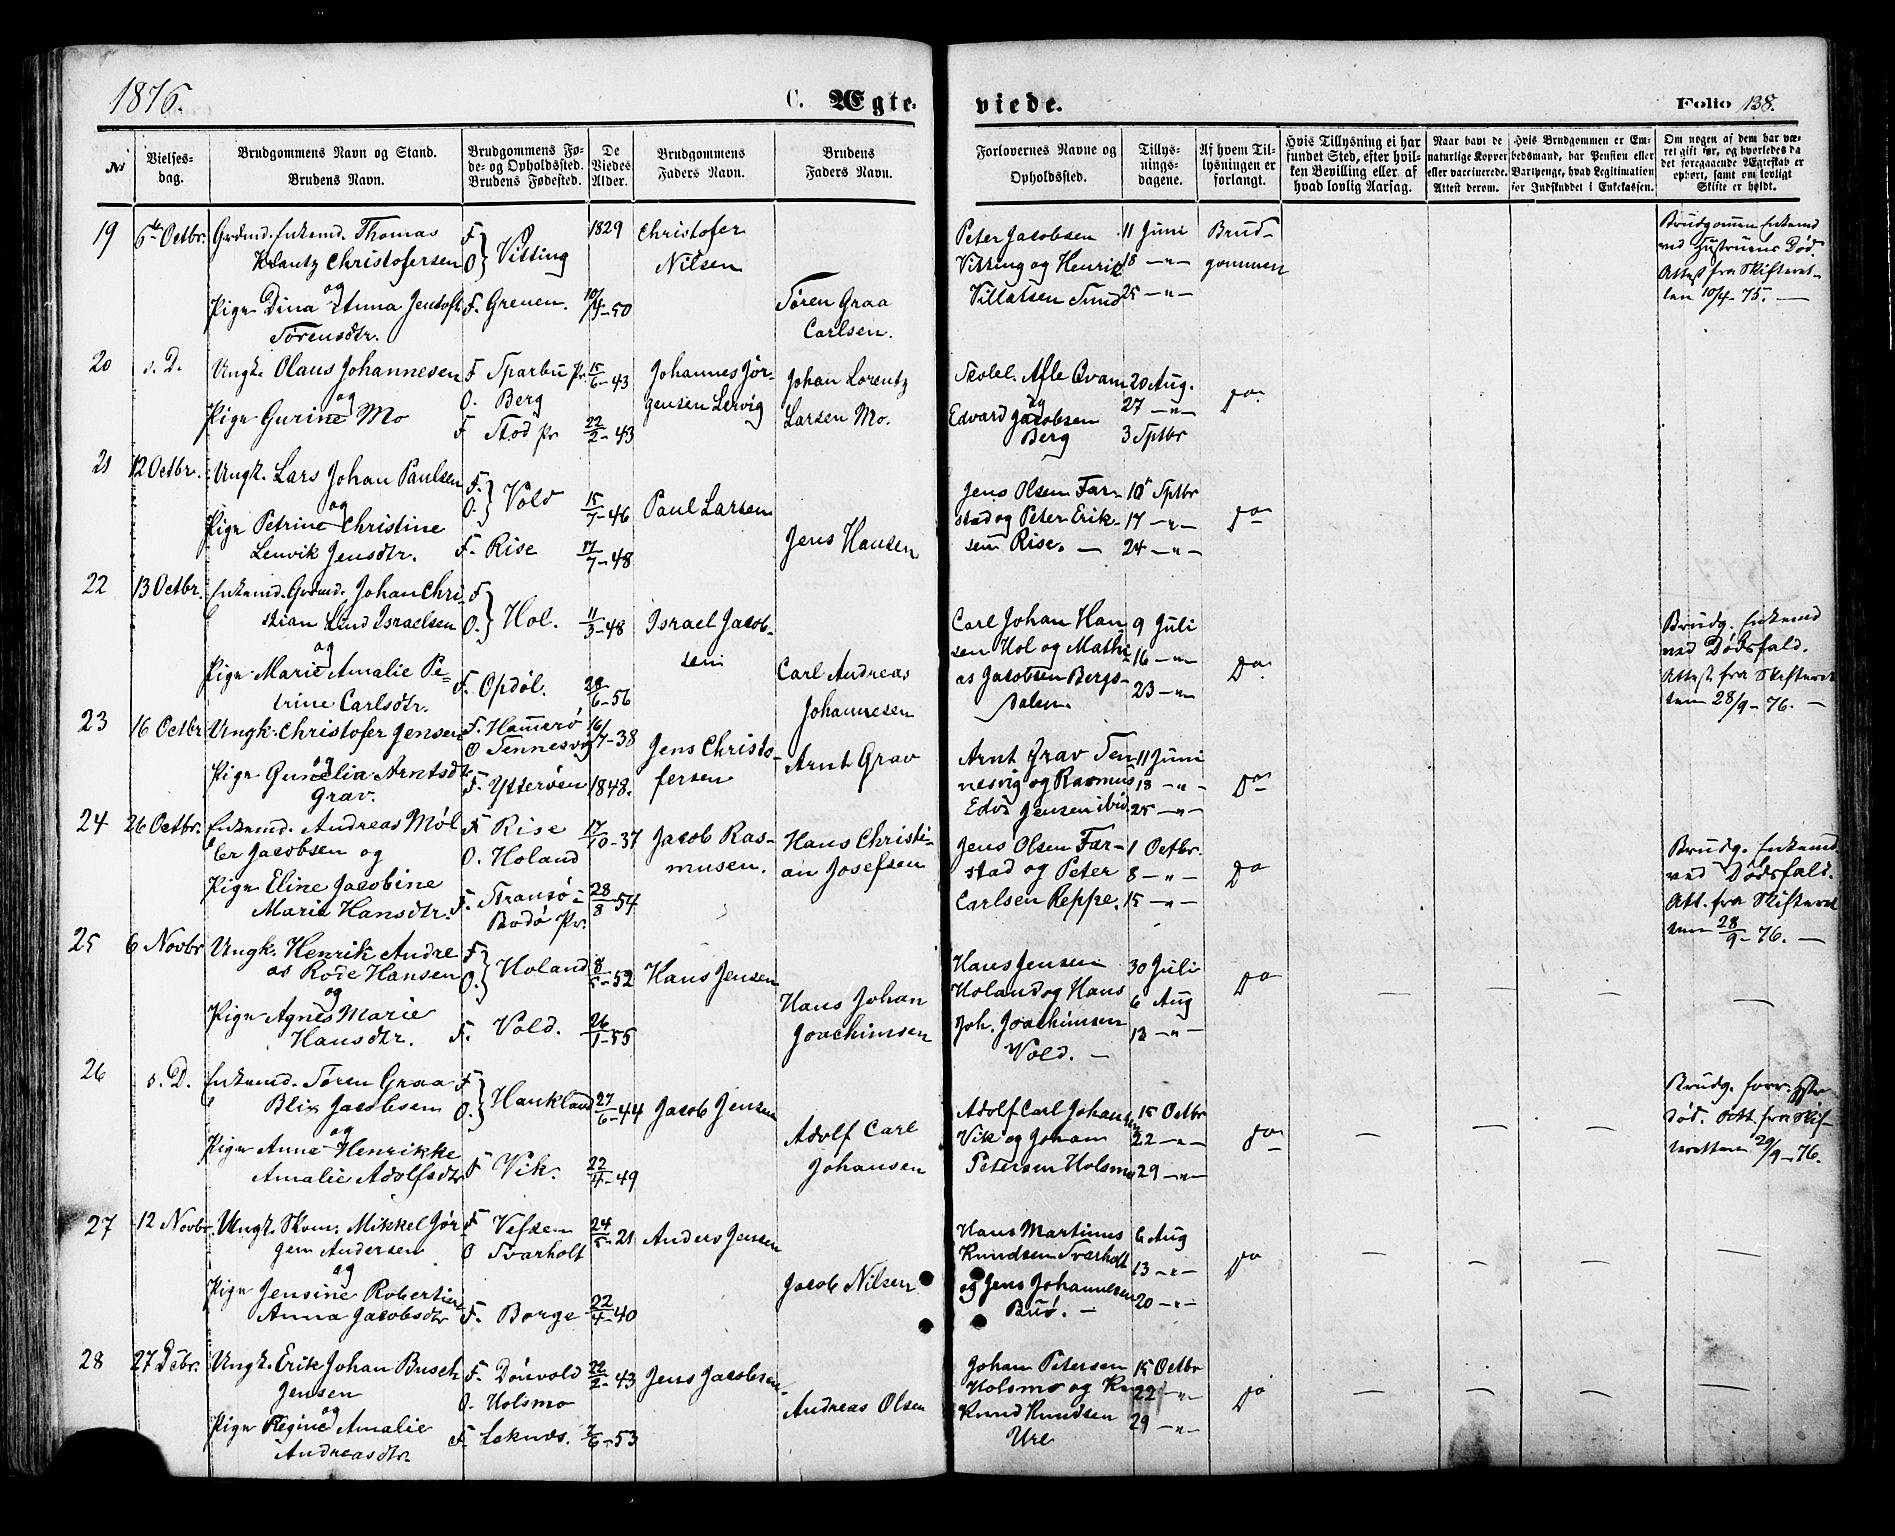 1876.
C. Ægte-
viede.
Folio 138.
No
Vielses-
dag.
Brudgommens Navn og Stand.
Brudens Navn.
Brudgommens Fø-
de- og Opholdssted.
Brudens Fødested.
De
Viedes
Alder.
Brudgommens
Faders Navn.
Brudens
Faders Navn.
Forlovernes Navne og
Opholdssted.
Tillys-
nings-
dagene.
Af hvem Til-
lysningen er
forlangt.
Hvis Tillysning ei har
fundet Sted, efter hvil-
ken Bevilling eller af
hvad lovlig Aarsag.
Naar havt de
naturlige Kopper
eller vaccinerede.
Attest derom.
Hvis Brudgommen er Em-
bedsmand, har Pension eller
Vartpenge, hvad Legitimation
for Indskuddet i Enkekassen.
Om nogen af dem har væ-
ret gift før, og hvorledes da
det foregaaende Ægteskab er
ophørt, samt om lovligt
Skifte er holdt.
19 6te Octbr. Grdmd. Enkemd. Thomas F 1829 Christofer Peter Jacobsen 11 Juni Brud- Brudgommen Enkemd
Krantz Christofersen O } Vitting Nilsen Vitting og Henrik 18 -"- gommen ved Hustruens Død.
og Attest fra Skifteret-
Pige Dina Anna Jentoft F. Greuen. 10/4-50 Søren Graa Villatsen Sund 25 -"- ten 10/4-75. —
Sørensdtr. Carlsen.
20 s. D. Ungk. Olaus Johannesen F Sparbu Pr. 15/6-43 Johannes Jør- Johan Lorentz Skolel. Afle Qvam 20 Aug.
og O. Berg gensen Lervig og 27 -"- Do
Pige Gurine Mo F Stod Pr 22/2-43 Larsen Mo. Edvard Jacobsen
Berg 3 Sptbr
21 12 Octbr. Ungk. Lars Johan Paulsen F. Jens Olsen Far- 10 Sptbr
og O. } Vold 15/7-46 Paul Larsen stad og Peter Erik- 17 -"- Do
Pige Petrine Christine
Lenvik Jensdtr. F. Rise 17/7-48 Jens Hansen sen Rise. — 24 -"-
22 13 Octbr. Enkemd. Grdmd. Johan Chri- F
stian Lind Israelsen O. } Hol. 11/3-48 Israel Jacob- Carl Johan Han 9 Juli Brudg. Enkemd
og sen sen Hol og Mathi- 16 -"- Do ved Dødsfald.
Pige Marie Amalie Pe- F. Opdøl. 28/6-56 Carl Andreas as Jacobsen Bergs- 23 -"- Attest fra Skifteret
trine Carlsdtr. Johannesen dalen. ten 28/9-76. —
23 16 Octbr Ungk. Christofer Jensen F. Hamerø 16/7-38 Jens Christo- Arnt Grav Sen 11 Juni
og O Sennesvig
Pige Gunelia Arntsdtr F. Ytterøen 1848. fersen Arnt Grav nesvig og Rasmus 18 -"- Do
Grav. Edv. Jensen ibid 25 -"-
24 26 Octbr. Enkemd. Andreas Møl- F Rise 17/10-37 Jacob Ras- Hans Christi- Jens Olsen Far- 1 Octbr. Brudg. Enkemd.
ler Jacobsen og O. Holand musen. an Josefsen stad og Peter 8 -"- Do ved Dødsfald.
Pige Eline Jacobine Carlsen Reppe. 15 -"- Att. fra Skifteret
Marie Hansdtr. F. Stransø i 28/8-54 ten 28/9-76. —
Bodø Pr.
25 6 Novbr Ungk. Henrik Andre F Hans Jensen 30 Juli
as Rode Hansen O. } Holand 8/5-52 Hans Jensen Holand og Hans 6 Aug Do — — — —
og
Pige Agnes Marie F. Vold. 26/1-55 Hans Johan Joh. Joachimsen 13 -"-
Hansdtr. Joachimsen Vold. —
26 s. D. Enkemd. Søren Graa F Brudg. forr. Hstr
Blix Jacobsen O. } Haukland 27/6-44 Jacob Jensen Adolf Carl Johansen 15 Octbr død. Att. fra Skif-
og Adolf Carl Vik og Johan 22 -"- Do — — — teretten 29/9-76.
Pige Anne Henrikke
Amalie Adolfsdtr F Vik. 22/4-49 Johansen Petersen Holsmo 29 -"-
27 12 Novbr. Ungk. Skom. Mikkel Jør- F Vefsen 24/5-21 Anders Jensen Hans Martinus 6 Aug
gen Andersen O Svarholt Knudsen Svarholt 13 -"- Do — — — —
og
Pige Jensine Robertine Jacob Nilsen og Jens Johannesen 20 -"-
Anna Jacobsdtr F. Borge 22/4-40 Buø. —
28 27 Debr. Ungk. Erik Johan Busch F. Dønvold 22/2-43 Jens Jacobsen Johan Petersen 15 Octbr
Jensen O. Holsmo Holsmo og 22 -"- Do — — — —
og
Pige Regine Amalie F. Leknes. 7/6-53 Andreas Olsen Knud Knudsen 29 -"-
Andreasdtr. Ure